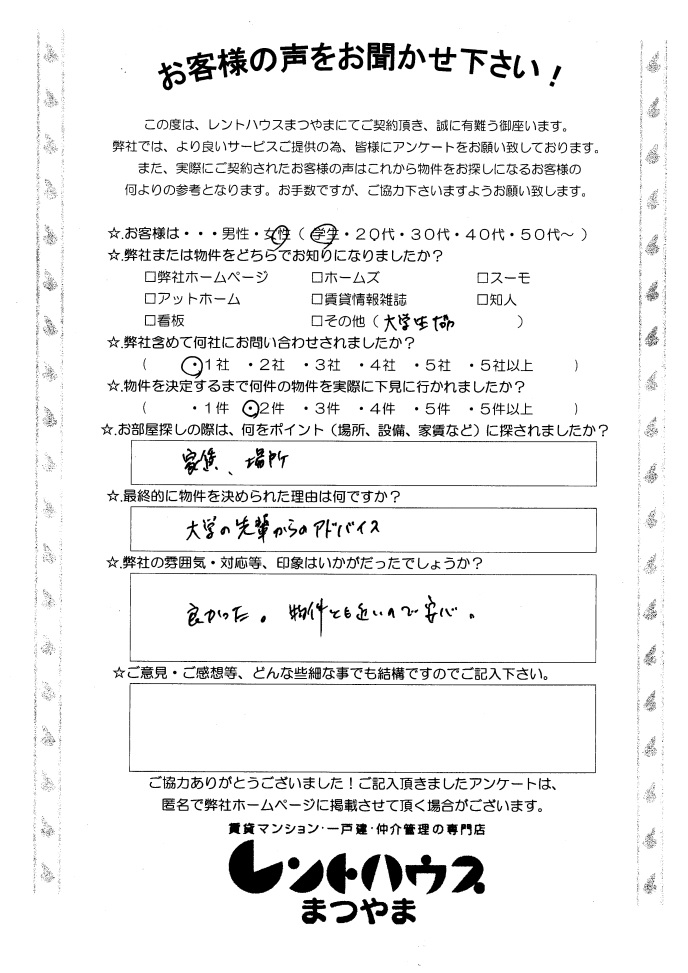 お客様の声をお聞かせ下さい！
この度は、レントハウスまつやまにてご契約頂き、誠に有難う御座います。
弊社では、より良いサービスご提供の為、皆様にアンケートをお願い致しております。
また、実際にご契約されたお客様の声はこれから物件をお探しになるお客様の
何よりの参考となります。お手数ですが、ご協力下さいますようお願い致します。
☆.お客様は・・・男性・女性（ 学生・２０代・３０代・４０代・５０代〜 ）
☆.弊社または物件をどちらでお知りになりましたか？
□弊社ホームページ □ホームズ □スーモ
□アットホーム □賃貸情報雑誌 □知人
□看板 □その他（ 大学生協 ）
☆.弊社含めて何社にお問い合わせされましたか？
（ ・１社 ・２社 ・３社 ・４社 ・５社 ・５社以上 ）
☆.物件を決定するまで何件の物件を実際に下見に行かれましたか？
（ ・１件 ・２件 ・３件 ・４件 ・５件 ・５件以上 ）
☆.お部屋探しの際は、何をポイント（場所、設備、家賃など）に探されましたか？
家賃、場所
☆.最終的に物件を決められた理由は何ですか？
大学の先輩からのアドバイス
☆.弊社の雰囲気・対応等、印象はいかがだったでしょうか？
良かった。物件とも近いので安心。
☆ご意見・ご感想等、どんな些細な事でも結構ですのでご記入下さい。
ご協力ありがとうございました！ご記入頂きましたアンケートは、
匿名で弊社ホームページに掲載させて頂く場合がございます。
賃貸マンション・一戸建・仲介管理の専門店
レントハウス
まつやま